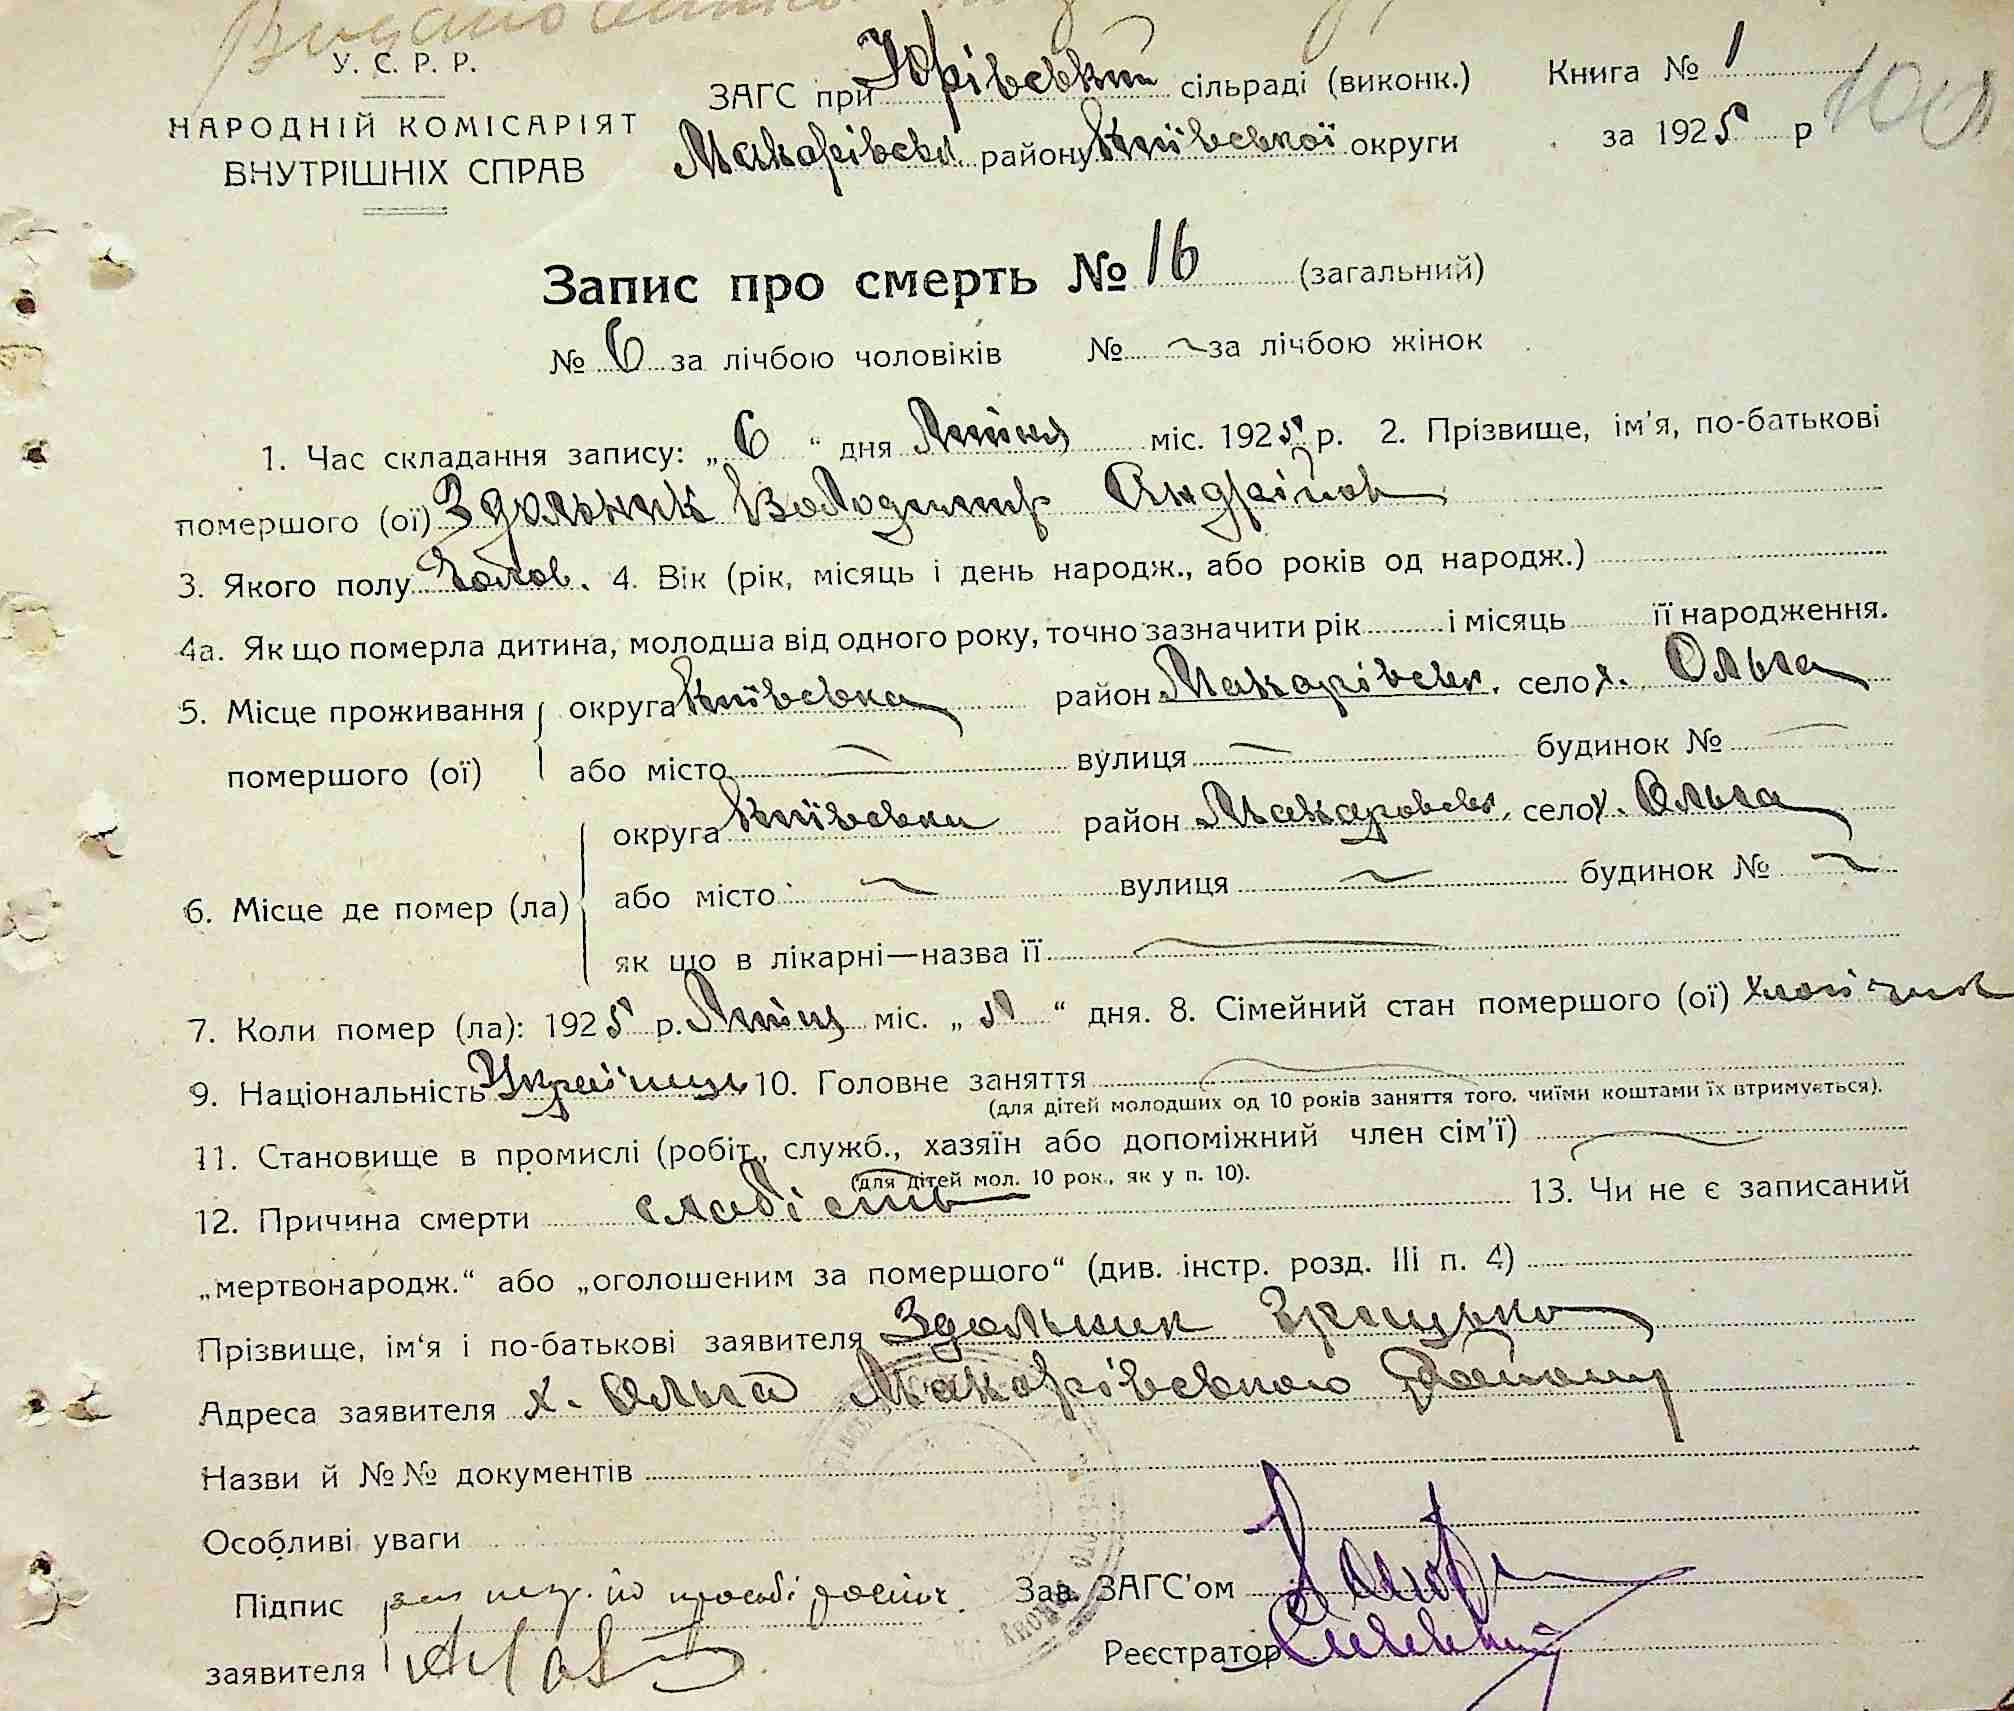 У. С. Р. Р.
НАРОДНІЙ КОМІСАРІЯТ
ВНУТРІШНІХ СПРАВ
ЗАГС при Юрівській сільраді (виконк.)
Макарівськ. району Київської округи
Книга № 1
за 1925 р
Запис про смерть № 16 (загальний)
№ 6 за лічбою чоловіків № за лічбою жінок
1. Час складання запису: „ 6 “ дня Липня міс. 1925 р. 2. Прізвище, ім'я, по-батькові
помершого (ої) Здольник Володимир Андрійов
3. Якого полу Чолов. 4. Вік (рік, місяць і день народж., або років од народж.)
4а. Як що померла дитина, молодша від одного року, точно зазначити рік і місяць її народження.
5. Місце проживання помершого (ої) округа Київська район Макарівськ. село х. Ольга
або місто — вулиця — будинок № —
6. Місце де помер (ла) округа Київська район Макаровськ. село х. Ольга
або місто — вулиця — будинок № —
як що в лікарні—назва її —
7. Коли помер (ла): 1925 р. Липня міс. „ 5 “ дня. 8. Сімейний стан помершого (ої) хлопчик
9. Національність Українець 10. Головне заняття —
(для дітей молодших од 10 років заняття того, чиїми коштами їх втримується).
11. Становище в промислі (робіт., служб., хазяїн або допоміжний член сім'ї) —
(для дітей мол. 10 рок., як у п. 10).
12. Причина смерти слабість 13. Чи не є записаний
„мертвонародж.“ або „оголошеним за помершого“ (див. інстр. розд. III п. 4)
Прізвище, ім'я і по-батькові заявителя Здольник Грицько
Адреса заявителя х. Ольга Макарівського Району
Назви й №№ документів
Особливі уваги
Підпис заявителя
Зав. ЗАГС'ом
Реєстратор